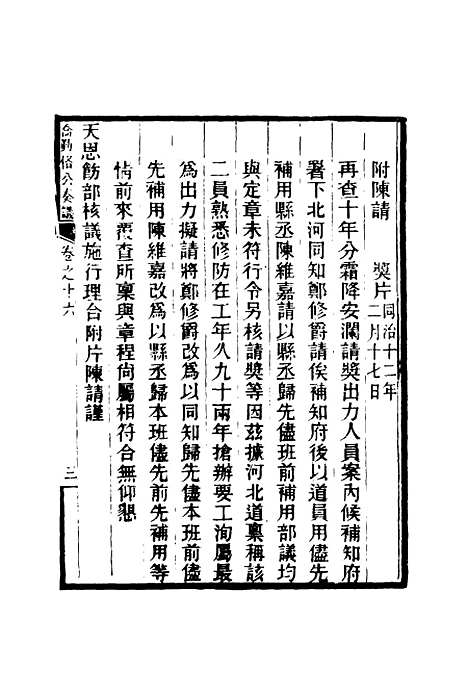 附陳請　獎片同治十二年
二月十七日
再查十年分霜降安瀾請獎出力人員案內候補知府
署下北河同知鄭修爵請俟補知府後以道員用儘先
補用縣丞陳維嘉請以縣丞歸先儘班前補用部議均
與定章未符行令另核請獎等因茲據河北道稟稱該
二員熟悉修防在工年久九十兩年搶辦要工洵屬最
爲出力擬請將鄭修爵改爲以同知歸先儘本班前儘
先補用陳維嘉改爲以縣丞歸本班儘先前先補用等
情前來覆查所稟與章程尙屬相符合無仰懇
天恩飭部核議施行理合附片陳請謹
喬勤恪公奏議
卷之十六
三